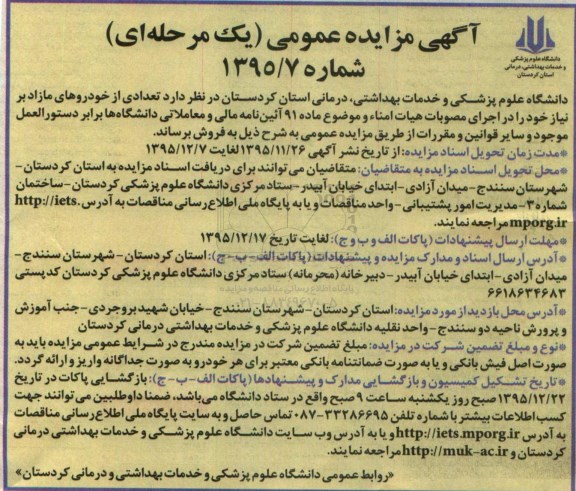 آگهی مزایده عمومی (یک مرحله‌ای)
شماره ۱۳۹۵/۷
دانشگاه علوم پزشکی
و خدمات بهداشتی، درمانی
استان کردستان
دانشگاه علوم پزشکی و خدمات بهداشتی، درمانی استان کردستان در نظر دارد تعدادی از خودروهای مازاد بر
نیاز خود را در اجرای مصوبات هیات امناء و موضوع ماده ۹۱ آئین‌نامه مالی و معاملاتی دانشگاه‌ها برابر دستورالعمل
موجود و سایر قوانین و مقررات از طریق مزایده عمومی به شرح ذیل به فروش برساند.
*مدت زمان تحویل اسناد مزایده: از تاریخ نشر آگهی ۱۳۹۵/۱۱/۲۶ لغایت ۱۳۹۵/۱۲/۷
*محل تحویل اسناد مزایده به متقاضیان: متقاضیان می‌توانند برای دریافت اسناد مزایده به استان کردستان-
شهرستان سنندج-میدان آزادی-ابتدای خیابان آبیدر-ستاد مرکزی دانشگاه علوم پزشکی کردستان-ساختمان
شماره ۳-مدیریت امور پشتیبانی-واحد مناقصات و یا به پایگاه ملی اطلاع رسانی مناقصات به آدرس http://iets.
mporg.ir مراجعه نمایند.
*مهلت ارسال پیشنهادات (پاکات الف و ب و ج): لغایت تاریخ ۱۳۹۵/۱۲/۱۷
*آدرس ارسال اسناد و مدارک مزایده و پیشنهادات (پاکات الف-ب-ج): استان کردستان-شهرستان سنندج-
میدان آزادی-ابتدای خیابان آبیدر-دبیرخانه (محرمانه) ستاد مرکزی دانشگاه علوم پزشکی کردستان کدپستی
۶۶۱۸۶۳۴۶۸۳
*آدرس محل بازدید از مورد مزایده: استان کردستان-شهرستان سنندج-خیابان شهید بروجردی-جنب آموزش
و پرورش ناحیه دو سنندج-واحد نقلیه دانشگاه علوم پزشکی و خدمات بهداشتی درمانی کردستان
*نوع و مبلغ تضمین شرکت در مزایده: مبلغ تضمین شرکت در مزایده مندرج در شرایط عمومی مزایده باید به
صورت اصل فیش بانکی و یا به صورت ضمانتنامه بانکی معتبر برای هر خودرو به صورت جداگانه واریز و ارائه گردد.
*تاریخ تشکیل کمیسیون و بازگشایی مدارک و پیشنهادها (پاکات الف-ب-ج): بازگشایی پاکات در تاریخ
۱۳۹۵/۱۲/۲۲ صبح روز یکشنبه ساعت ۹ صبح واقع در ستاد دانشگاه می‌باشد، ضمنا داوطلبین می‌توانند جهت
کسب اطلاعات بیشتر با شماره تلفن ۳۳۲۸۶۶۹۵-۰۸۷ تماس حاصل و به سایت پایگاه ملی اطلاع رسانی مناقصات
به آدرس http://iets.mporg.ir و یا به آدرس وب سایت دانشگاه علوم پزشکی و خدمات بهداشتی درمانی
کردستان و http://muk-ac.ir مراجعه نمایند.
«روابط عمومی دانشگاه علوم پزشکی و خدمات بهداشتی و درمانی کردستان»